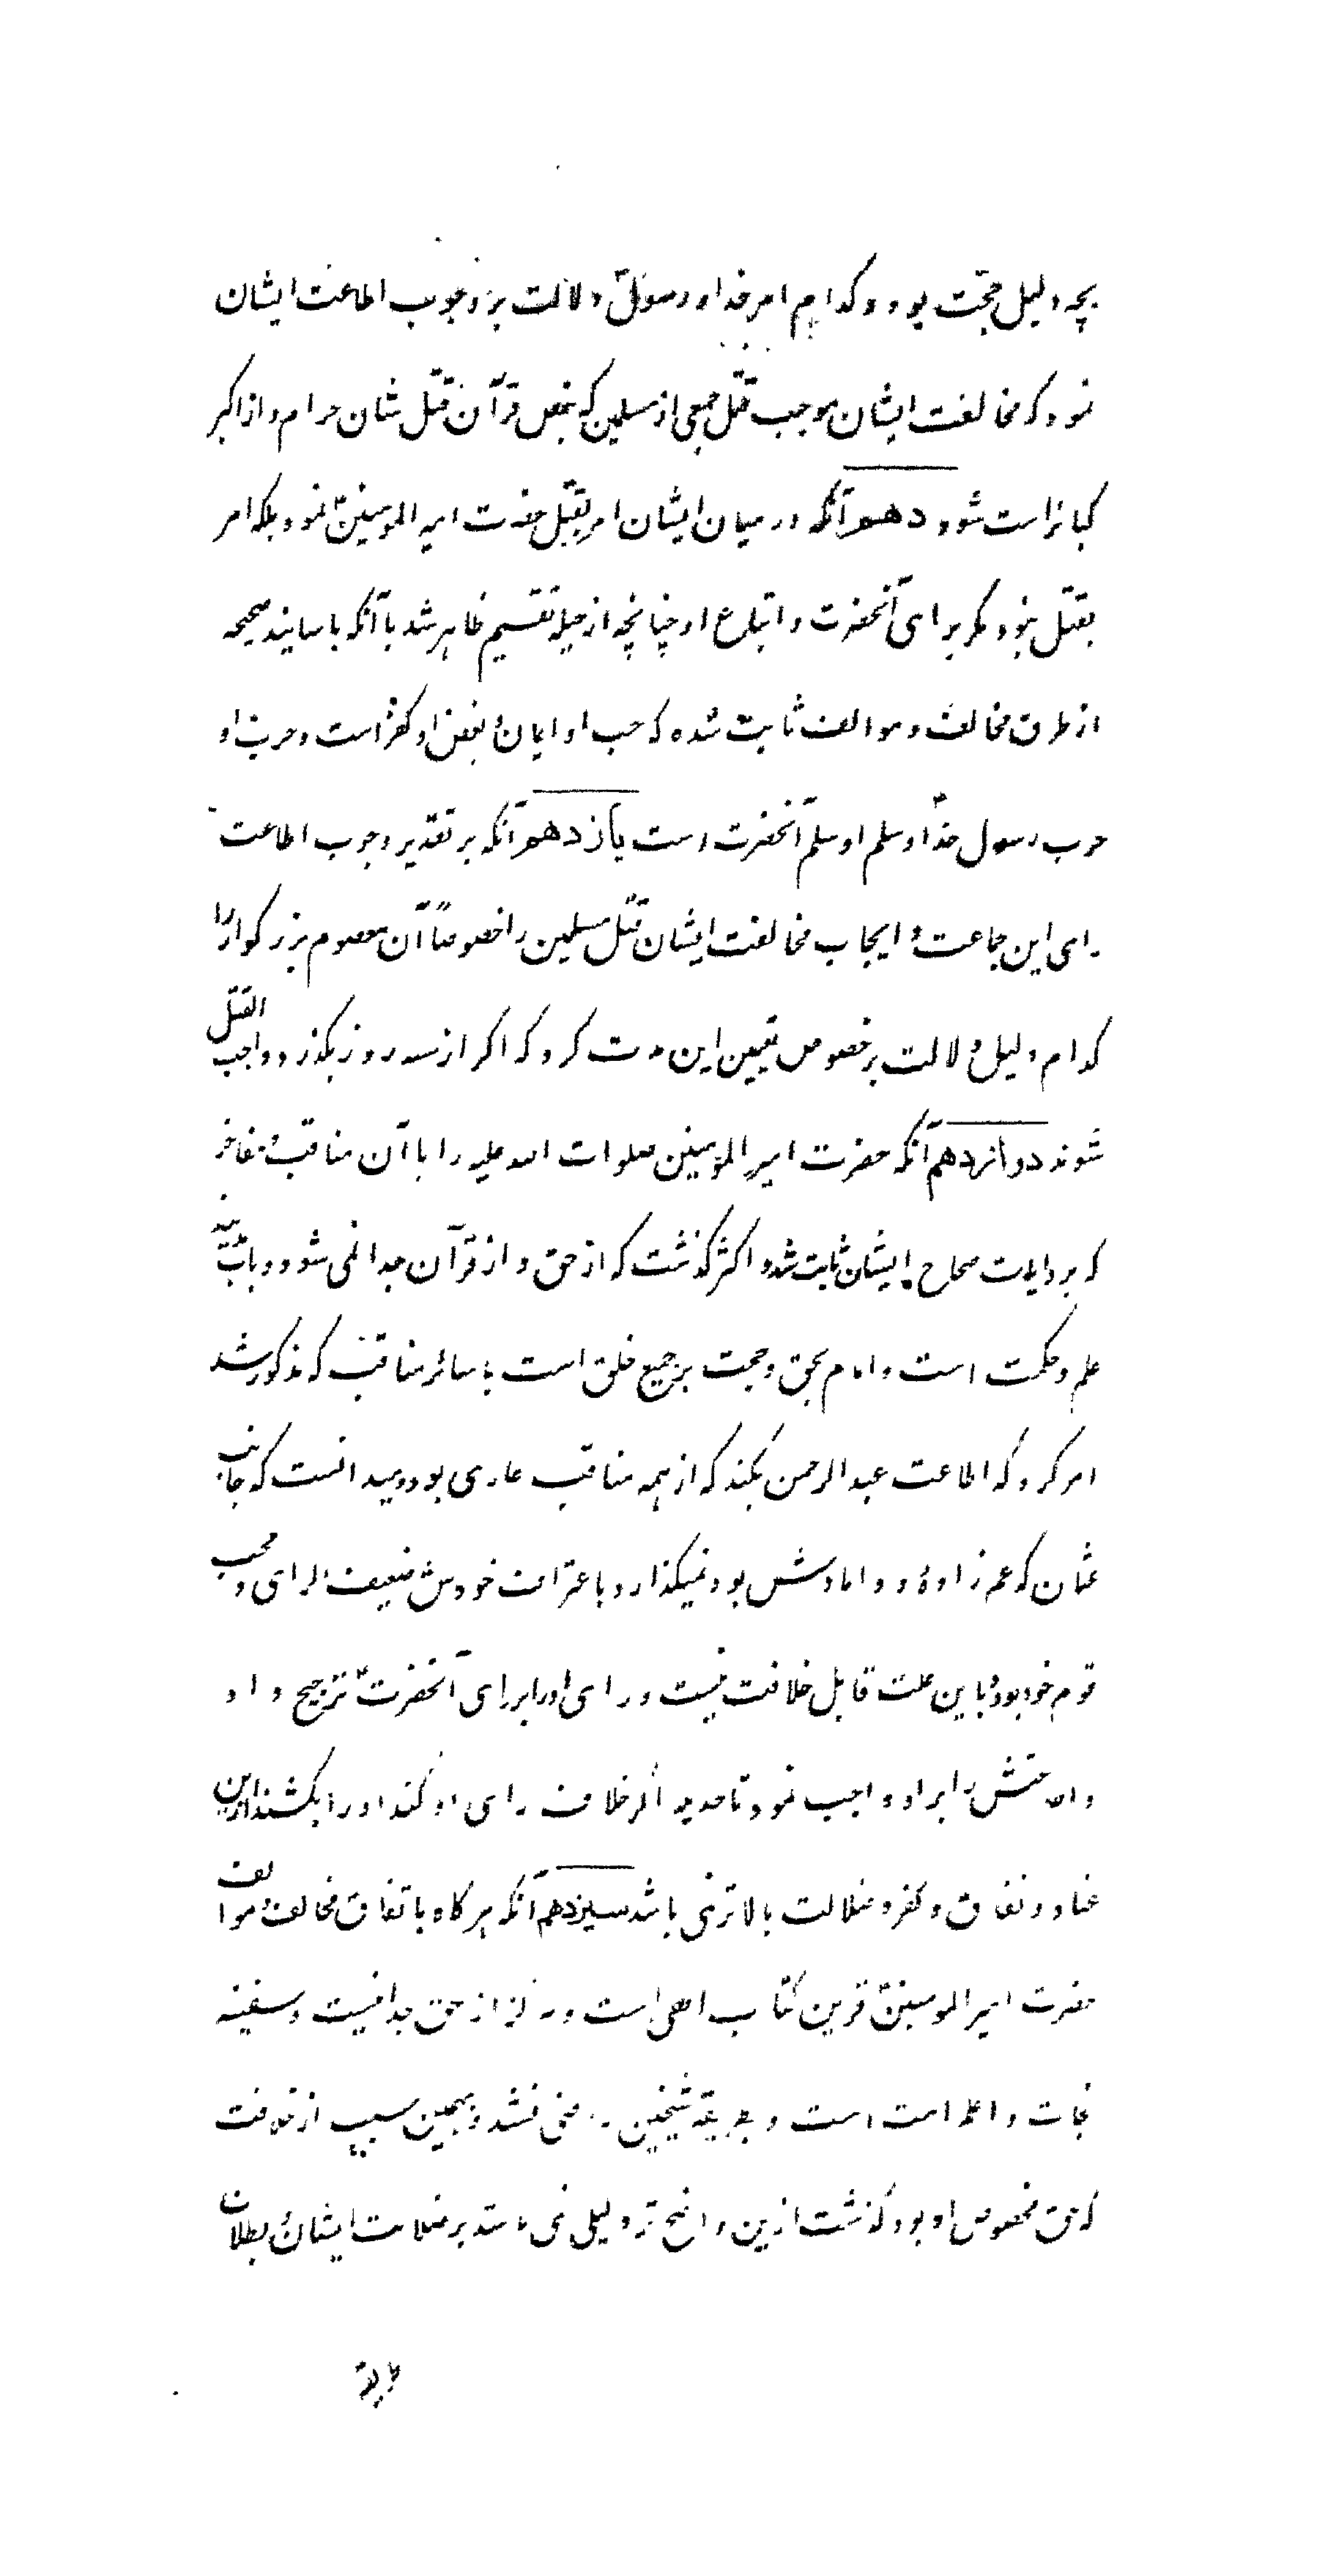 بچه دلیل حجت بود و کدام امر خدا و رسولؐ دلالت بر وجوب اطاعت ایشان
نمود که مخالفت ایشان موجب قتل جمعی از مسلمین که بنص قرآن قتل شان حرام و از اکبر
کبائر است شود دهم آنکه در میان ایشان امر بقتل حضرت امیر المومنینؑ نمود بلکه امر
بقتل نبود مگر برای آنحضرت و اتباع او چنانچه از حیله تقسیم ظاهر شد با آنکه باسانید صحیحه
از طرق مخالف و موالف ثابت شده که حب او ایمان و بغض او کفر است و حرب او
حرب رسول خدا و سلم او سلم آنحضرت است یازدهم آنکه بر تقدیر وجوب اطاعت
رای این جماعت و ایجاب مخالفت ایشان قتل مسلمین را خصوصاً آن معصوم بزرگوار را
کدام دلیل دلالت بر خصوص تعیین این مدت کرد که اگر از سه روز بگذرد واجب القتل
شوند دوازدهم آنکه حضرت امیر المومنین صلوات الله علیه را با آن مناقب و مفاخر
که بروایات صحاح ایشان ثابت شده و اکثر گذشت که از حق و از قرآن جدا نمی شود و باب مدینه
علم و حکمت است و امام بحق و حجت بر جمیع خلق است با سائر مناقب که مذکور شد
امر کرد که اطاعت عبد الرحمن بکند که از همه مناقب عاری بود و میدانست که جانب
عثمان که عم زاده و دامادش بود نمیگذارد و باعتراف خودش ضعیف الرای و محب
قوم خود بود و باین علت قابل خلافت نیست و رای او را بر رای آنحضرتؑ ترجیح داد
و اطاعتش را بر او واجب نمود تا حدیکه اگر خلاف رای او کند او را بکشند ازین
عناد و نفاق و کفر و ضلالت بالاتر نمی باشد سیزدهم آنکه هرگاه باتفاق مخالف و موالف
حضرت امیر المومنینؑ قرین کتاب الهی است و هرگز از حق جدا نیست و سفینه
نجات و اعلم امت است و بطریقه شیخین راضی نشد و بهمین سبب از خلافت
که حق مخصوص او بود گذشت ازین واضح تر دلیلی نمی باشد بر ضلالت ایشان و بطلان
طریقه